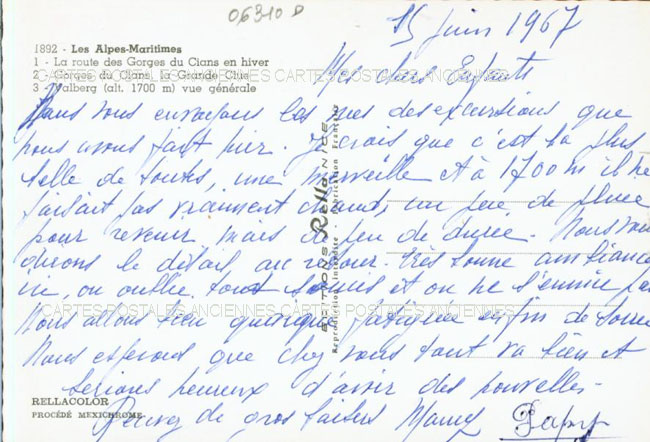 06310 D
15 Juin 1967
1892 - Les Alpes-Maritimes
1 - La route des Gorges du Cians en hiver
2 - Gorges du Cians, la Grande Clue
3 - Valberg (alt. 1700 m) vue générale
Mes chers Enfants
Nous vous envoyons les vues des excursions que
nous avons fait hier. Je crois que c'est la plus
belle de toutes, une merveille et à 1700 m il ne
faisait pas vraiment chaud, un peu de pluie
pour revenir mais de peu de durée. Nous vous
dirons le détail au retour. très bonne ambiance
on oublie tous soucis et on ne s'ennuie pas
CARTES POSTALES ANCIENNES CARTES POSTALES ANCIENNES
Nous allons bien quoique fatiguée enfin de
Nous espérons que chez vous tout va bien et
serions heureux d'avoir des nouvelles.
Recevez de gros baisers Mamy Papy
RELLACOLOR
PROCÉDÉ MEXICHROME
EDITIONS Rella NICE
Reproduction interdite - Fabrication Française